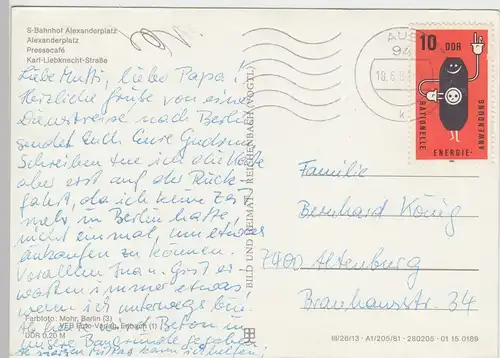 S-Bahnhof Alexanderplatz
Alexanderplatz
Pressecafé
Karl-Liebknecht-Straße
Liebe Mutti, lieber Papa!
Herzliche Grüße von einer
Dienstreise nach Berlin
sendet Euch Eure Gudrun.
Schreiben tue ich die Karte
aber erst auf der Rück-
fahrt, da ich keine Zeit
mehr in Berlin hatte,
nicht einmal, um etwas
einkaufen zu können.
Vor allem Frau
immer etwas,
wenn ich unterwegs bin.
in
unsere
kann ich
Farbfoto: Mohr, Berlin (3)
VEB Foto-Verlag, Erlbach (1)
DDR 0,20 M
BILD UND HEIMAT REICHENBACH (VOGTL)
AUE
94
10 DDR
RATIONELLE
ENERGIE-
ANWENDUNG
Familie
Bernhard König
7400 Altenburg
Brauhausstr. 34
III/26/13 A1/205/81 280205 01 15 0189